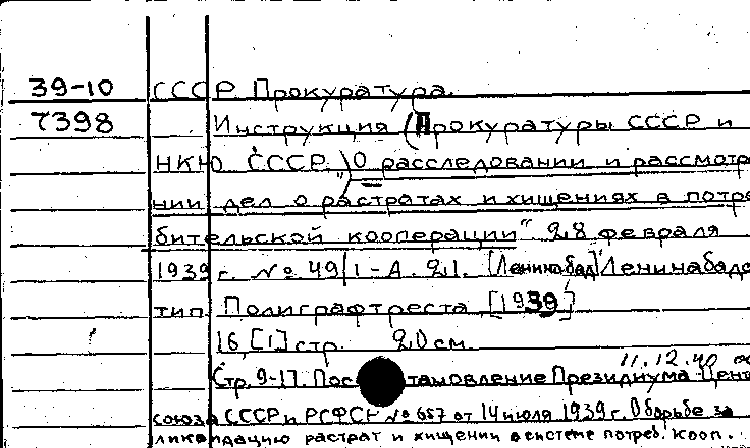 39-10 СССР. Прокуратура.
7398 Инструкция (Прокуратуры СССР и
НКЮ СССР.) „О расследовании и рассмотре
нии дел о растратах и хищениях в потре
бительской кооперации" 28 февраля
1939 г. № 49/1-А. 21. [Ленинабад] Ленинабадс
тип. Полиграфтреста [1939]
16, [1] стр. 20 см.
11.12.40
Стр. 9-17. Пос тановление Президиума Цент
союза СССР и РСФСР № 657 от 14 июля 1939 г. О борьбе за
ликвидацию растрат и хищении в системе потреб. кооп.